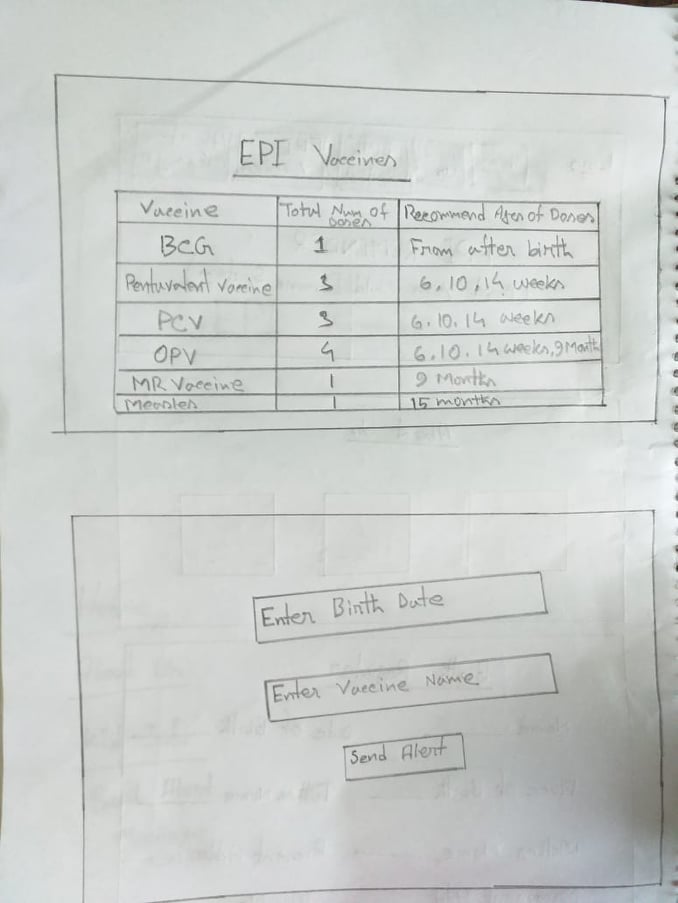 EPI Vaccines
Vaccine Total Num of Doses Recommend Ages of Doses
BCG 1 From after birth
Pentavalent Vaccine 3 6, 10, 14 weeks
PCV 3 6. 10. 14 weeks
OPV 4 6. 10. 14 weeks, 9 Month
MR Vaccine 1 9 Months
Measles 1 15 months
Enter Birth Date
Enter Vaccine Name
Send Alert